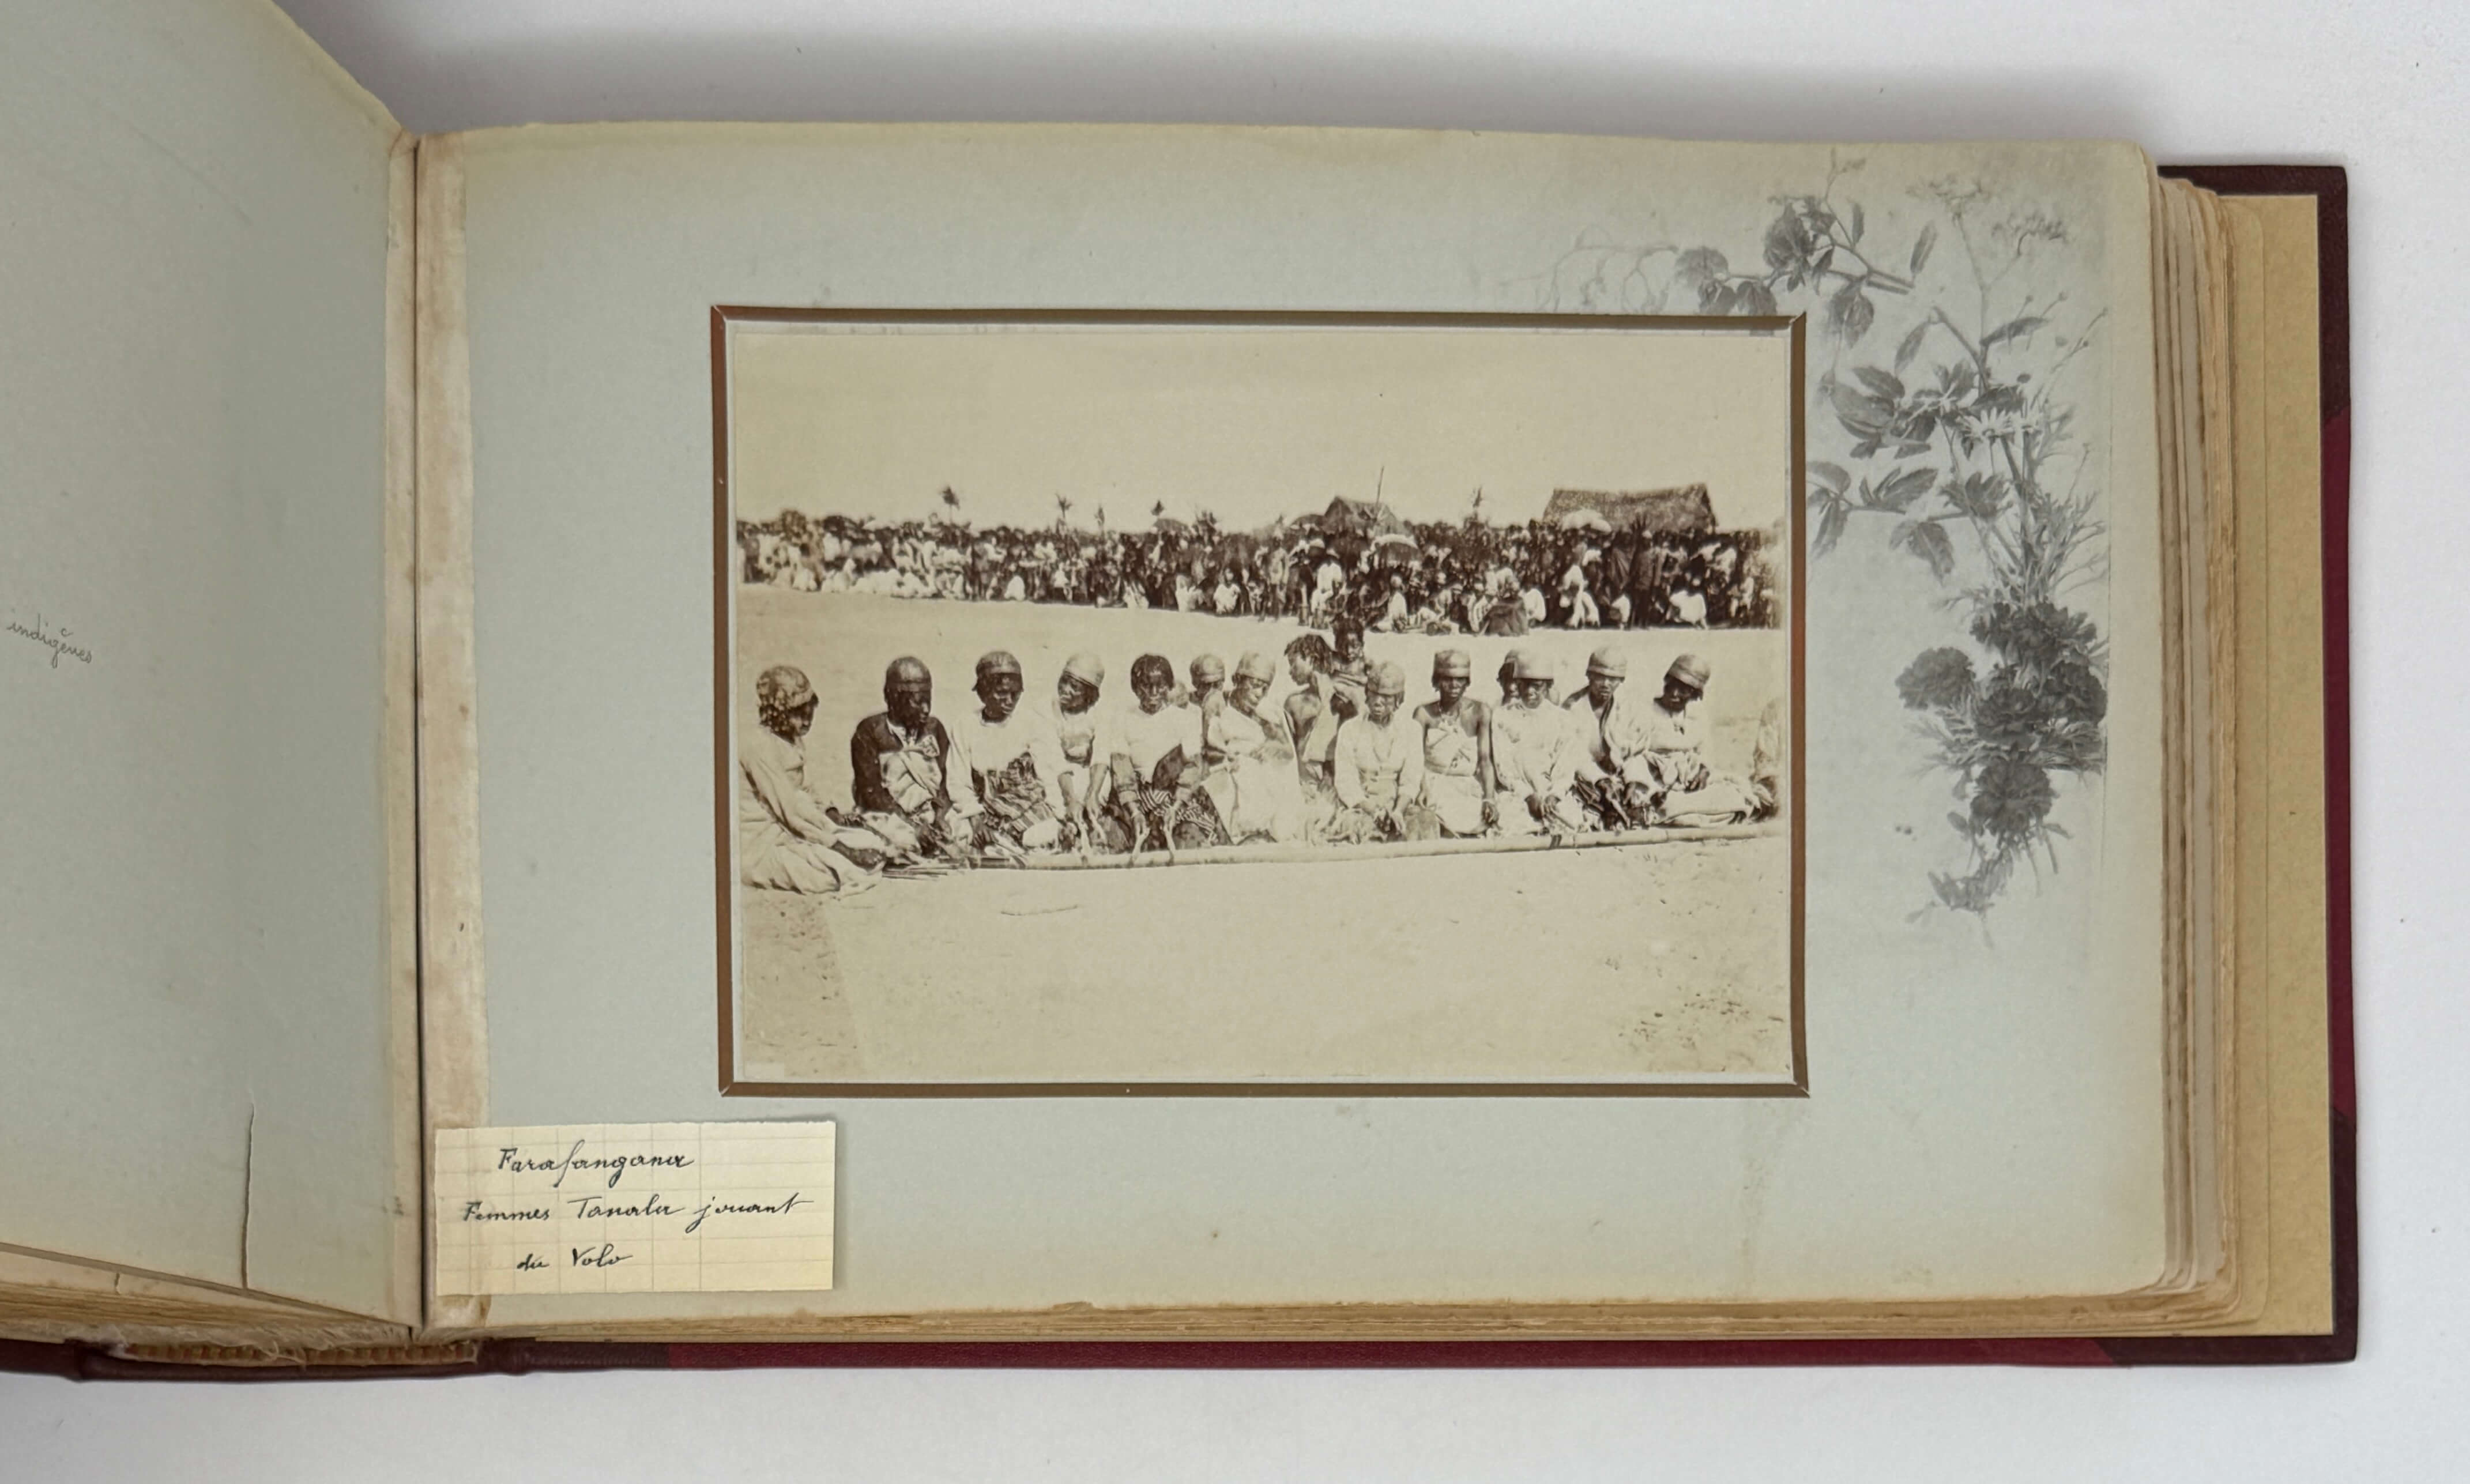 indigènes
Farafangana
Femmes Tanala jouant
du Volo